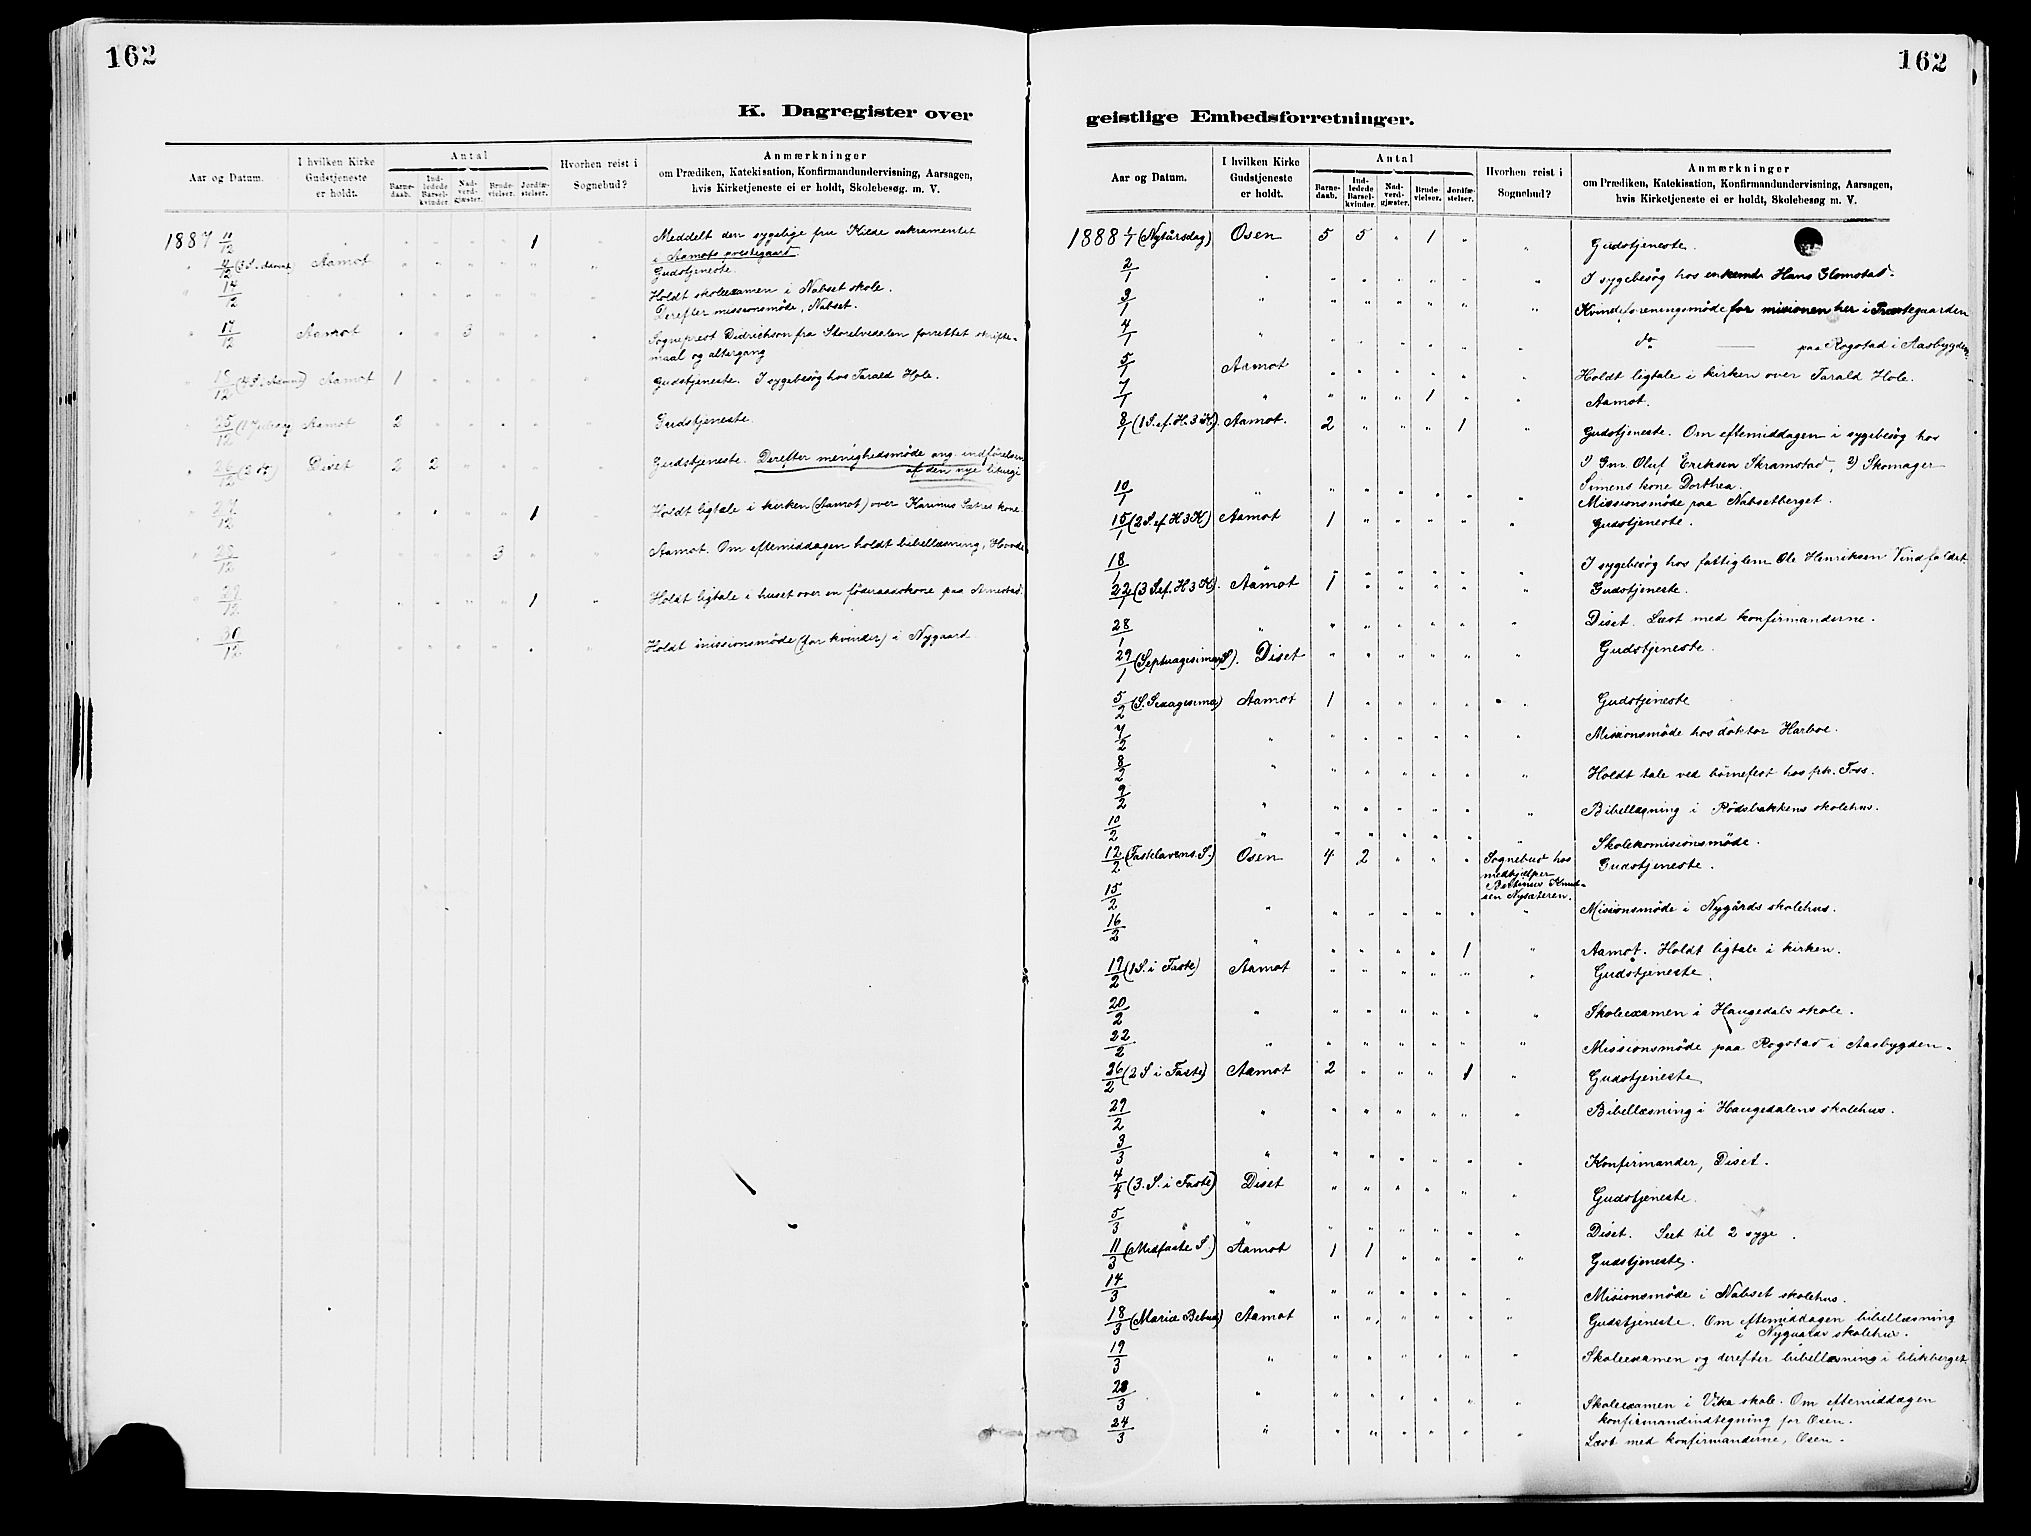 162
K. Dagregister over
Aar og Datum. I hvilken Kirke Gudstjeneste er holdt. Antal Barnedaab. Indledede Barselkvinder. Nadverdgjæster. Brudevielser. Jordfæstelser. Hvorhen reist i Sognebud? Anmærkninger om Prædiken, Katekisation, Konfirmandundervisning, Aarsagen, hvis Kirketjeneste ei er holdt, Skolebesøg. m. V.
1887 11/12 " " " " " 1 " Meddelt den sygelige fru Kilde sakramentet
i Aamots prestegaard.
" 11/12 (3 S. Advent) Aamot " " " " " " Gudstjeneste.
" 14/12 " " " " " " " Holdt skoleexamen i Nabset skole.
Derefter missionsmöde, Nabset.
" 17/12 Aamot " " 3 " " " Sogneprest Didrichson fra Storelvedalen forrettet skrifte-
maal og altergang
" 18/12 (4 S. Advent) Aamot 1 " " " " " Gudstjeneste. I sygebesög hos Tarald Hole.
" 25/12 (1 Juledag) Aamot 2 " " " " " Gudstjeneste.
" 26/12 Diset 2 2 " " " " Gudstjeneste. Derefter menighedsmöde ang. indförelsen
af den nye liturgi
" 27/12 " " " " " 1 " Holdt ligtale i kirken (Aamot) over Karinus kone.
" 28/12 " " " " 3 " " Aamot. Om eftemiddagen holdt bibellæsning,
" 29/12 " " " " " 1 " Holdt ligtale i huset over en föderaadskone paa
" 30/12 " " " " " " " Holdt missionsmöde (for kvinder) i Nygaard
162
geistlige Embedsforretninger.
Aar og Datum. I hvilken Kirke Gudstjeneste er holdt. Antal Barnedaab. Indledede Barselkvinder. Nadverdgjæster. Brudevielser. Jordfæstelser. Hvorhen reist i Sognebud? Anmærkninger om Prædiken, Katekisation, Konfirmandundervisning, Aarsagen, hvis Kirketjeneste ei er holdt, Skolebesøg m. V.
1888 1/1 (Nytårsdag) Osen 5 5 " 1 " " Gudstjeneste.
2/1 " " " " " " " I sygebesög hos enkemd. Hans
3/1 " " " " " " " Kvindeforeningsmöde for misionen her i Prestegaarden
4/1 " " " " " " " do — paa Rogstad i Aasbygden
5/1 Aamot " " " " " " Holdt ligtale i kirken over Tarald Hole.
7/1 " " " " 1 " " Aamot.
8/1 (1 S. ef. H. 3 K). Aamot. 2 " " " 1 " Gudstjeneste. Om eftemiddagen i sygebesög hos
1) Gm. Oluf Eriksen Skramstad, 2) Skomager
Simens kone Dorthea.
10/1 " " " " " " " Missionsmöde paa Nabsetberget.
15/1 (2 S. ef H 3 K) Aamot 1 " " " " " Gudstjeneste.
18/1 " " " " " " " I sygebesög hos fattiglem Ole Henriksen Vindfaldet.
22/1 (3 S. ef. H 3 K). Aamot 1 " " " " " Gudstjeneste.
28/1 " " " " " " " Diset. Læst med konfirmanderne.
29/1 (Septuagesima S). Diset " " " " " " Gudstjeneste.
5/2 (S. Sexagesima) Aamot 1 " " " " " Gudstjeneste
7/2 " " " " " " " Missionsmöde hos doktor Harboe.
8/2 " " " " " " " Holdt tale ved börnefest hos frk. Foss.
9/2 " " " " " " " Bibellæsning i Rödsbakkens skolehus.
10/2 " " " " " " " Skolekomisionsmöde.
12/2 (Fastelavens S.) Osen 4 2 " " " Sognebud hos Gudstjeneste.
medhjælper
Knud-
sen Nysæteren.
15/2 " " " " " " " Misionsmöde i Nygårds skolehus.
16/2 " " " " " 1 " Aamot. Holdt ligtale i kirken.
19/2 (1 S. i Faste) Aamot " " " " " " Gudstjeneste.
20/2 " " " " " " " Skoleexamen i Haugedals skole.
22/2 " " " " " " " Missionsmöde paa Rogstad i Aasbygden.
26/2 (2 S i Faste) Aamot 2 " " " 1 " Gudstjeneste
29/2 " " " " " " " Bibellæsning i Haugedalens skolehus.
3/3 " " " " " " " Konfirmander, Diset.
4/4 (3. S. i Faste) Diset " " " " " " Gudstjeneste.
5/3 " " " " " " " Diset. Seet til 2 syge.
11/3 (Midfaste S.) Aamot 1 1 " " " " Gudstjeneste.
14/3 " " " " " " " Misionsmöde i Nabset skolehus.
18/3 (Mariæ Bebud) Aamot " " " " " " Gudstjeneste. Om eftemiddagen bibellæsning
i Nygaards skolehus.
19/3 " " " " " " " Skoleexamen og derefter bibellæsning i
23/3 " " " " " " " Skoleexamen i Vika skole. Om eftemiddagen
konfirmandindtegning for Osen.
24/3 " " " " " " " Læst med konfirmanderne, Osen.